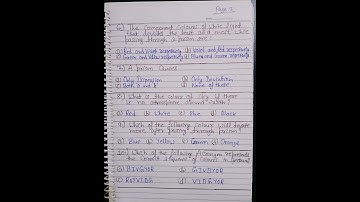 Page 2
6) The Component Colours of white light
that deviate the least and most while
passing through a prism are:
a) Red and Violet respectively b) Violet and Red respectively
c) Green and Yellow respectively d) Blue and Green respectively
7) A prism Causes
a) Only Dispersion b) Only Deviation
c) Both a & b d) None of these
8) What is the colour of Sky if there
is no atmosphere around Earth?
a) Red b) White c) Blue d) Black
9) Which of the following Colour will deviate
more after passing through prism?
a) Blue b) Yellow c) Green d) Orange
10) Which of the following Acronym represents
the Correct sequence of Colours in
a) BIVGYOR b) GIVBYOR
c) ROYVIBG d) VIBGYOR